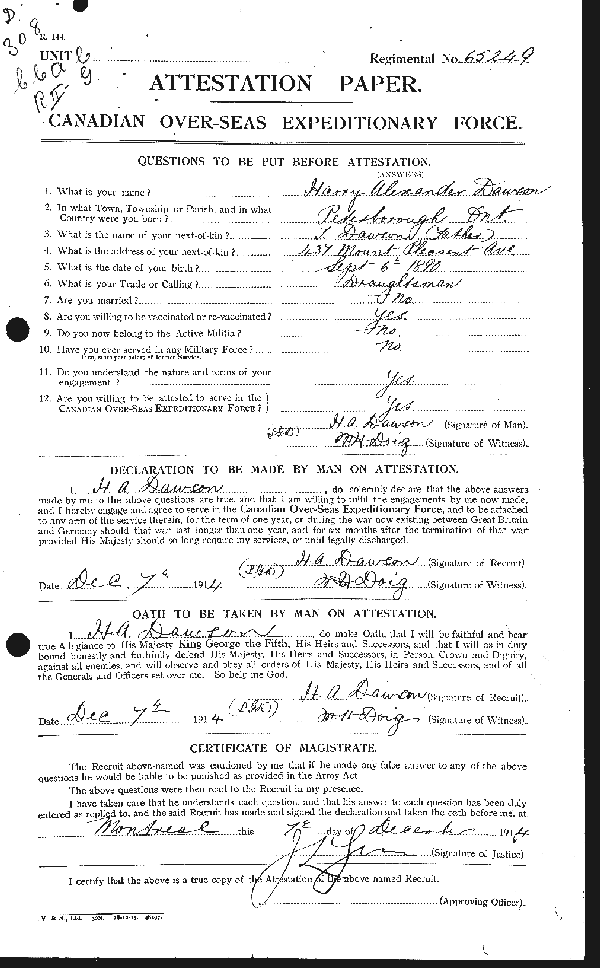 D.
308
R. 144.
66a
R
UNIT 6
9
Regimental No. 65249
ATTESTATION PAPER.
CANADIAN OVER-SEAS EXPEDITIONARY FORCE.
QUESTIONS TO BE PUT BEFORE ATTESTATION.
(ANSWERS)
1. What is your name? Harry Alexander Dawson
2. In what Town, Township or Parish, and in what
Country were you born? Peterborough Ont.
3. What is the name of your next-of-kin? Dawson (Father)
4. What is the address of your next-of-kin? 437 Mount Pleasant Ave
5. What is the date of your birth? Sept 6th 1890
6. What is your Trade or Calling? Draughtsman
7. Are you married? No.
8. Are you willing to be vaccinated or re-vaccinated? Yes
9. Do you now belong to the Active Militia? No.
10. Have you ever served in any Military Force? No.
If so, state particulars of former Service.
11. Do you understand the nature and terms of your
engagement? Yes
12. Are you willing to be attested to serve in the
CANADIAN OVER-SEAS EXPEDITIONARY FORCE? Yes
H A Dawson (Signature of Man).
(SGD) W H Doig (Signature of Witness).
DECLARATION TO BE MADE BY MAN ON ATTESTATION.
I, H A Dawson, do solemnly declare that the above answers
made by me to the above questions are true, and that I am willing to fulfil the engagements by me now made,
and I hereby engage and agree to serve in the Canadian Over-Seas Expeditionary Force, and to be attached
to any arm of the service therein, for the term of one year, or during the war now existing between Great Britain
and Germany should that war last longer than one year, and for six months after the termination of that war
provided His Majesty should so long require my services, or until legally discharged.
H A Dawson (Signature of Recruit)
Date Dec 7th 1914 (SGD) W H Doig (Signature of Witness)
OATH TO BE TAKEN BY MAN ON ATTESTATION.
I, H A Dawson, do make Oath, that I will be faithful and bear
true Allegiance to His Majesty King George the Fifth, His Heirs and Successors, and that I will as in duty
bound honestly and faithfully defend His Majesty, His Heirs and Successors, in Person, Crown and Dignity,
against all enemies, and will observe and obey all orders of His Majesty, His Heirs and Successors, and of all
the Generals and Officers set over me. So help me God.
H A Dawson (Signature of Recruit).
Date Dec 7th 1914 (SGD) W H Doig (Signature of Witness)
CERTIFICATE OF MAGISTRATE.
The Recruit above-named was cautioned by me that if he made any false answer to any of the above
questions he would be liable to be punished as provided in the Army Act
The above questions were then read to the Recruit in my presence.
I have taken care that he understands each question, and that his answer to each question has been duly
entered as replied to, and the said Recruit has made and signed the declaration and taken the oath before me, at
Montreal this 7th day of December 1914
(Signature of Justice)
I certify that the above is a true copy of the Attestation of the above named Recruit.
(Approving Officer).